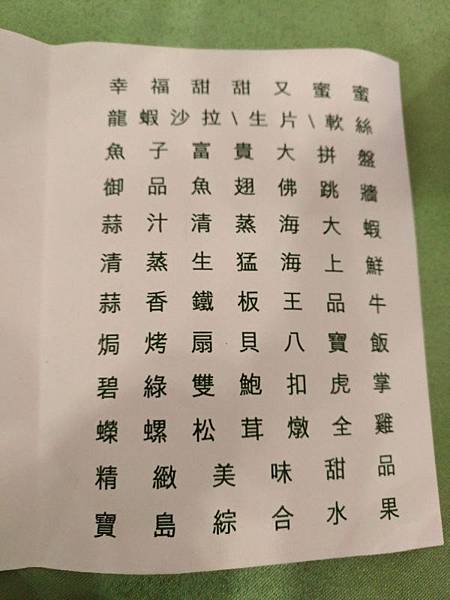 幸福甜甜又蜜蜜
龍蝦沙拉\生片\軟絲
魚子富貴大拼盤
御品魚翅佛跳牆
蒜汁清蒸海大蝦
清蒸生猛海上鮮
蒜香鐵板王品牛
焗烤扇貝八寶飯
碧綠雙鮑扣虎掌
蠑螺松茸燉全雞
精緻美味甜品
寶島綜合水果